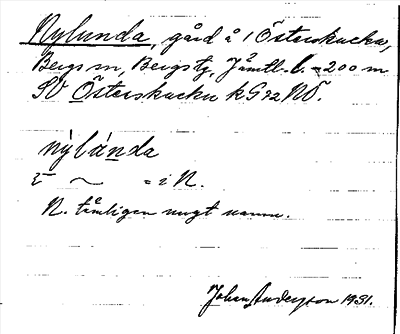 Nylunda, gård å 1 Österskucku,
Bergs sn, Bergs tg, Jämtl. l. – 200 m
SV Österskucku kG 92 NÖ.
nýlúnda
ξ ~ = i N.
N. tämligen nugt namn.
Johan Anderzon 1931.